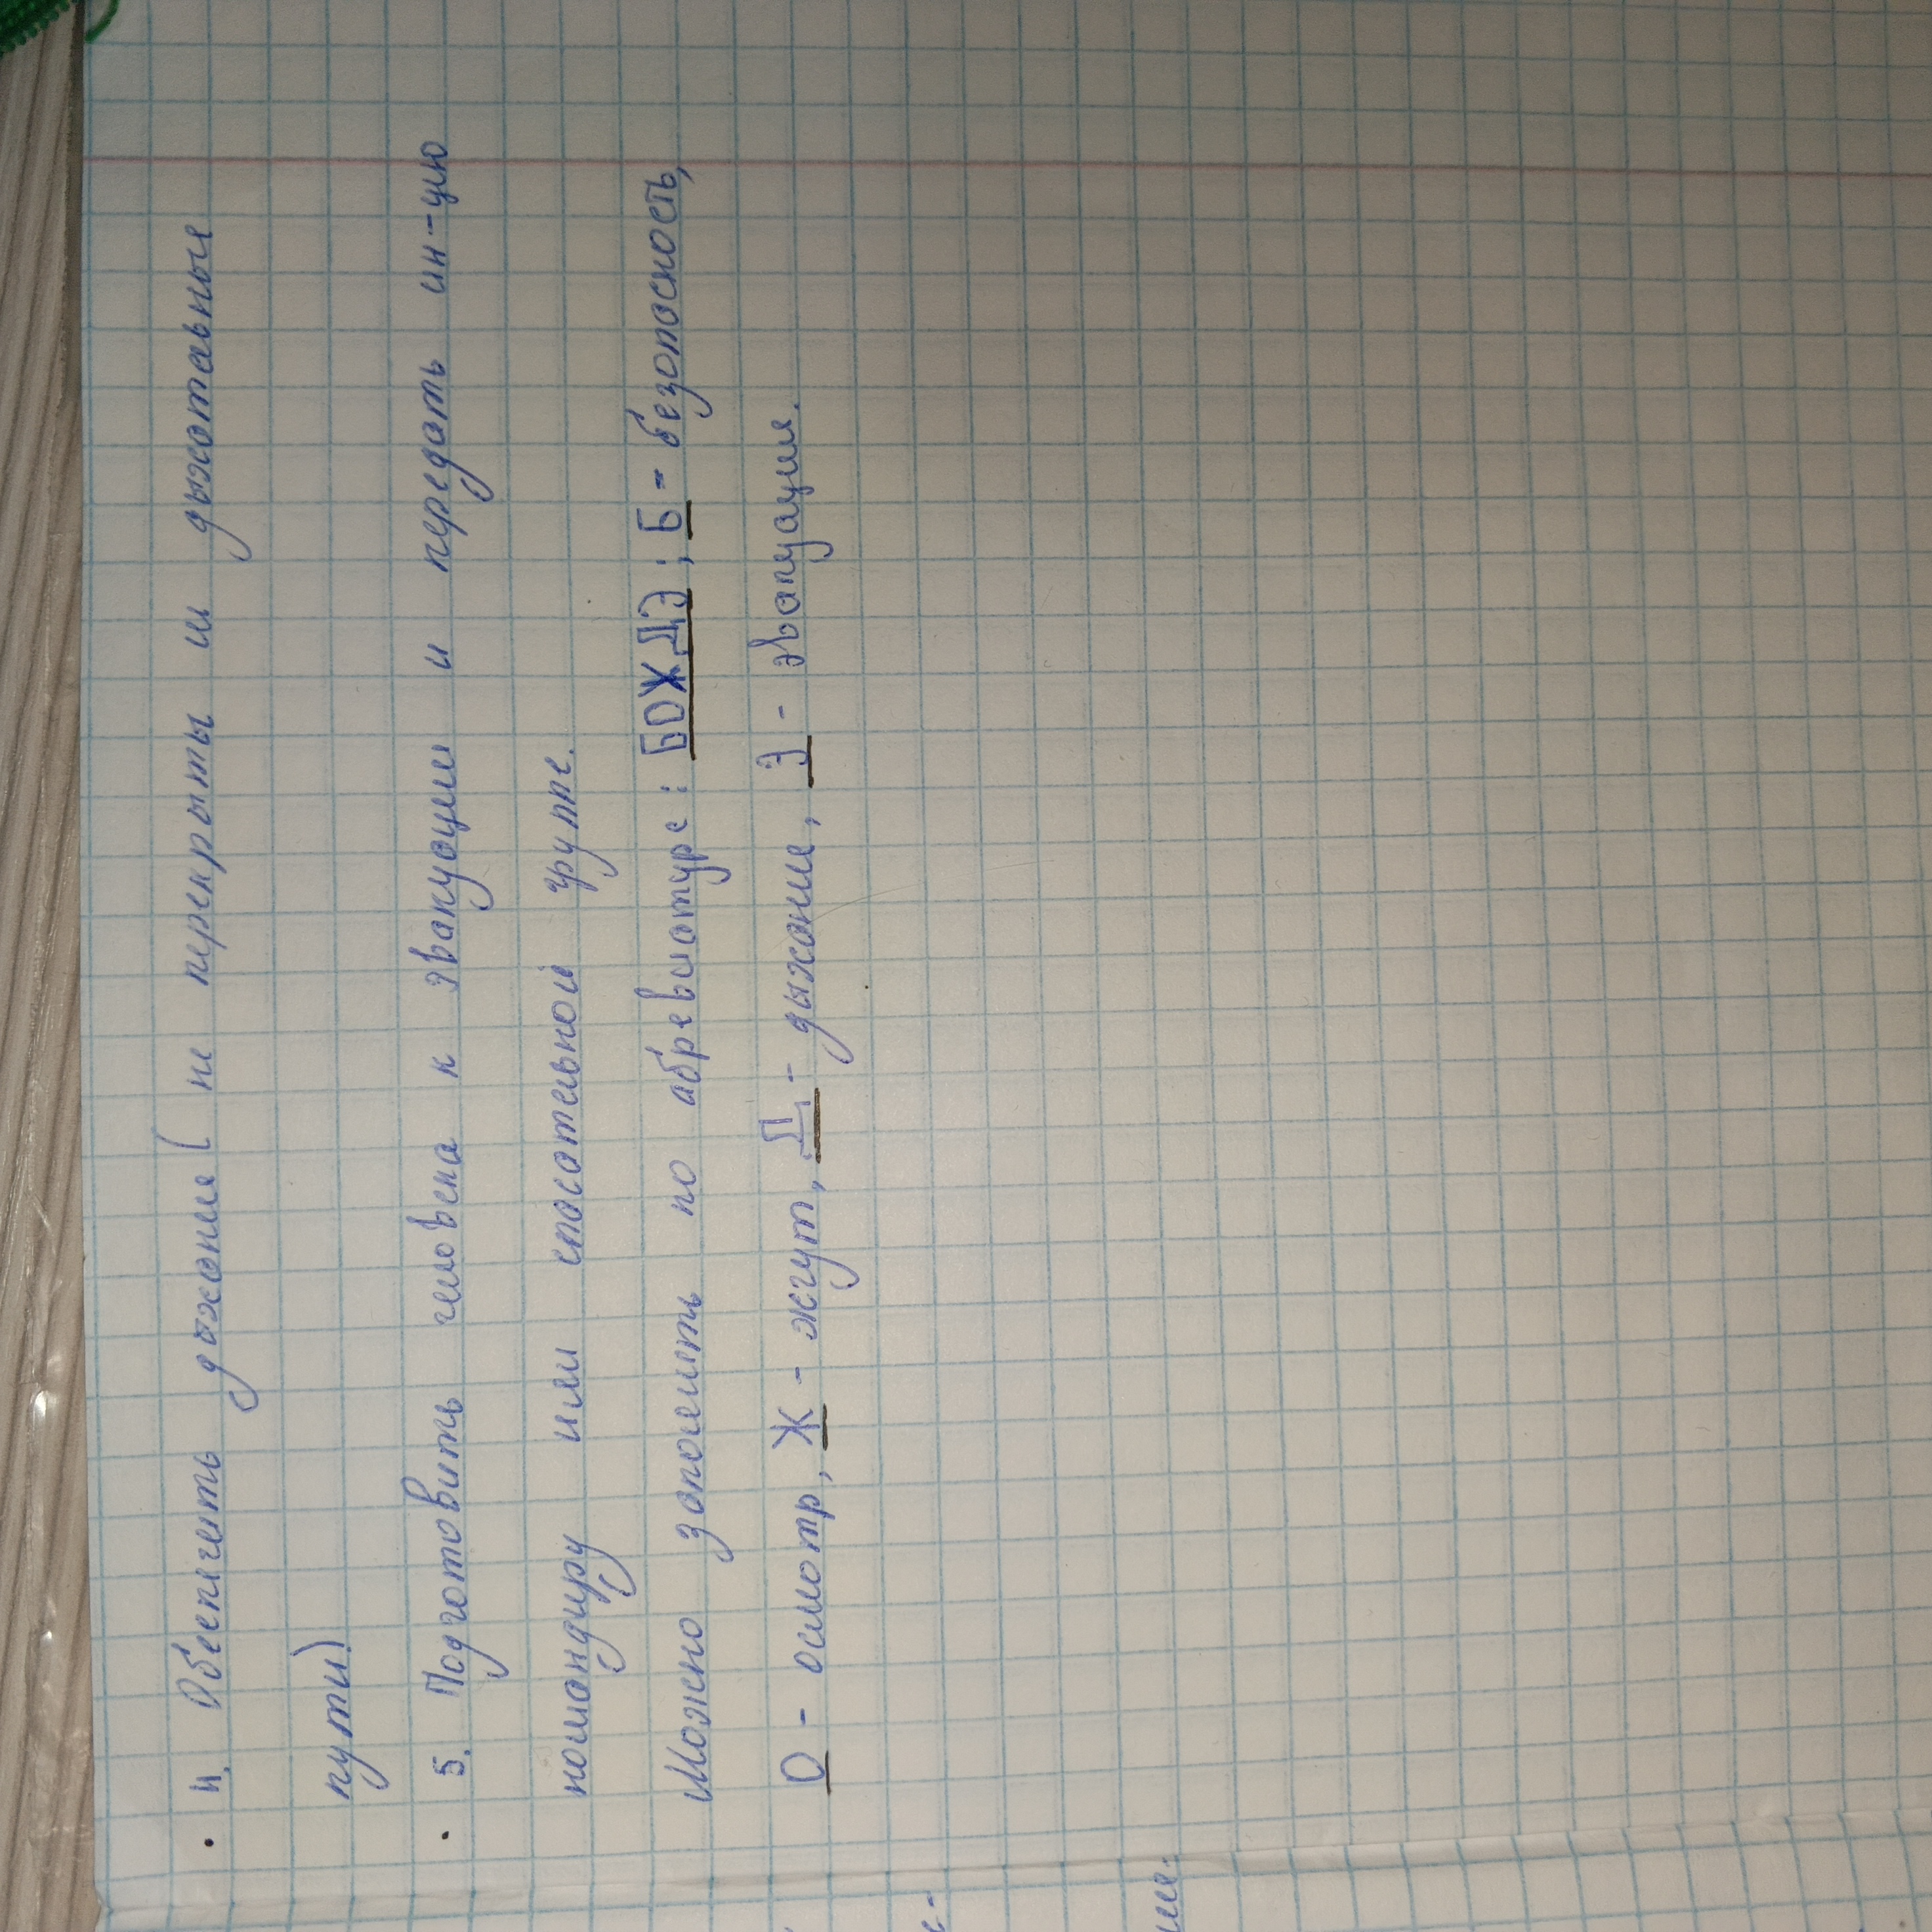 · 4. Обеспечить дыхание (не перекрыты ли дыхательные
пути)
· 5. Подготовить человека к эвакуации и передать ин-цию
командиру или спасательной группе.
Можно запомнить по абревиатуре: БОЖДЭ; Б - безопасность,
О - осмотр, Ж - жгут, Д - дыхание, Э - эвакуация.